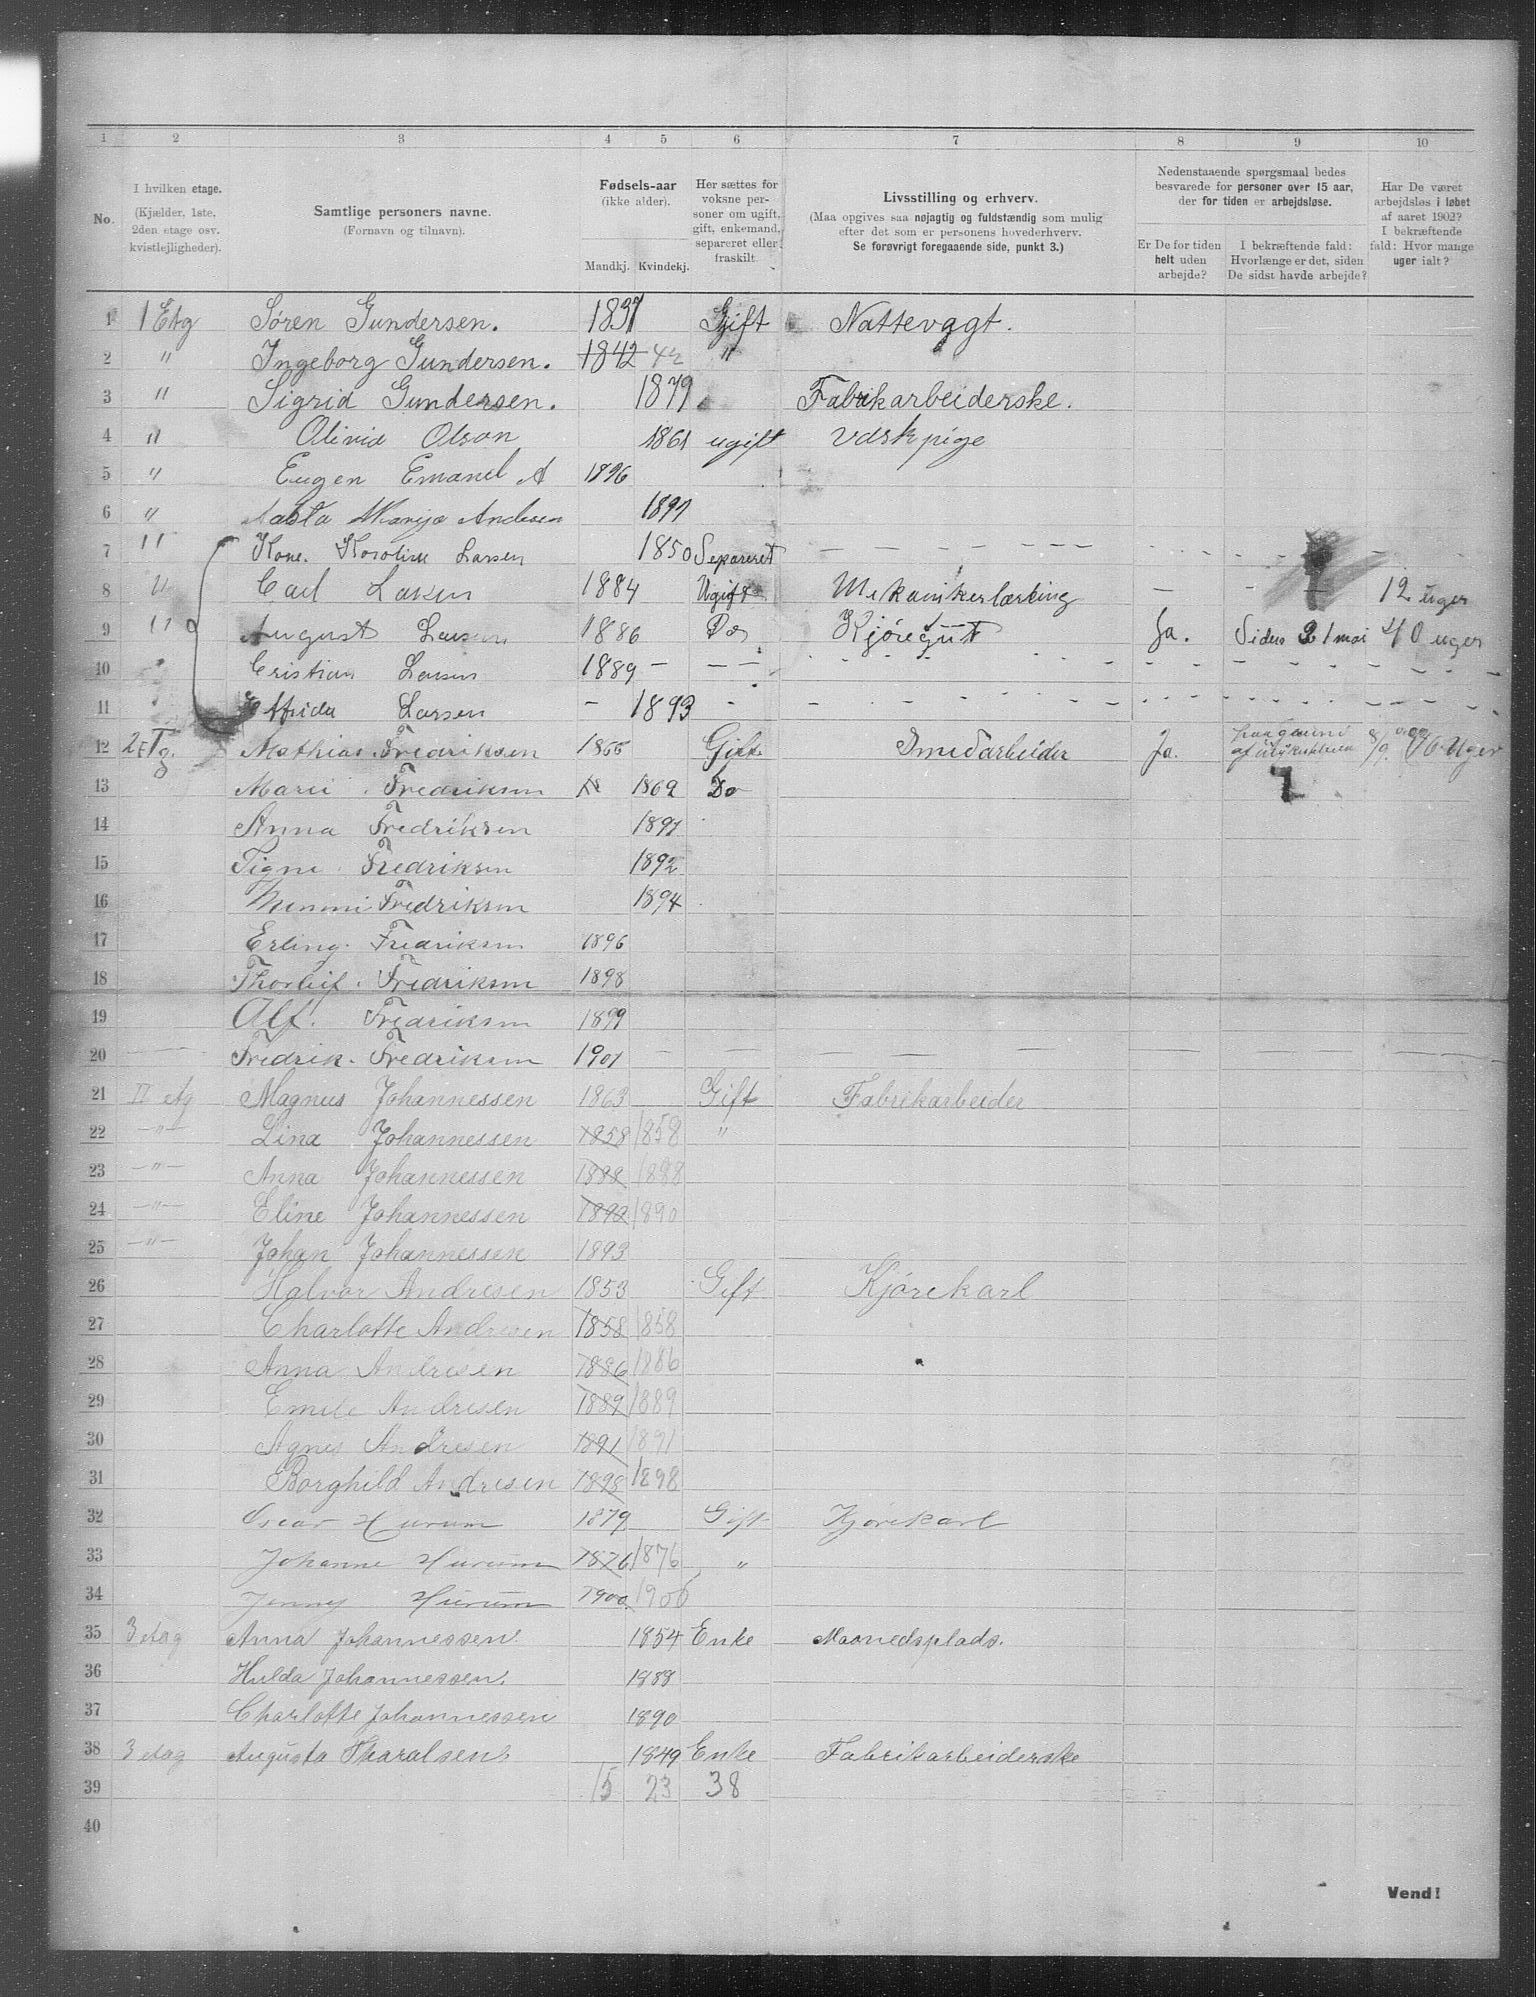 1 2 3 4 5 6 7 8 9 10
No.
I hvilken etage.
(Kjælder, 1ste,
2den etage osv.
kvistlejligheder).
Samtlige personers navne.
(Fornavn og tilnavn).
Fødsels-aar
(ikke alder).
Mandkj. Kvindekj.
Her sættes for
voksne per-
soner om ugift,
gift, enkemand,
separeret eller
fraskilt.
Livsstilling og erhverv.
(Maa opgives saa nøjagtig og fuldstændig som mulig
efter det som er personens hovederhverv.
Se forøvrigt foregaaende side, punkt 3.)
Nedenstaaende spørgsmaal bedes
besvarede for personer over 15 aar,
der for tiden er arbejdsløse.
Er De for tiden
helt uden
arbejde?
I bekræftende fald:
Hvorlænge er det, siden
De sidst havde arbejde?
Har De været
arbejdsløs i løbet
af aaret 1902?
I bekræftende
fald: Hvor mange
uger ialt?
1 1 Etg Søren Gundersen. 1837 Gift Nattevagt.
2 " Ingeborg Gundersen. 1842 42 "
3 " Sigrid Gundersen. 1879 Fabrikarbeiderske.
4 " Olivia Olson 1861 ugift Vdskpige
5 " Eugen Emanel A 1896
6 " Aasta Marije Andersen 1897
7 " Kone. Karoline Larsen 1850 Separeret — — —
8 " Carl Larsen 1884 Ugift Mekanikerlærling — - 12 uger
9 " August Larsen 1886 Do Kjøregut Ja. Siden 21 mai 40 uger
10 " Cristian Larsen 1889 — — —
11 " Larsen - 1893 - - -
12 2 Etg. Mathias Fredriksen 1866 Gift Smedarbeider Ja. 16 Uger
13 Marie Fredriksen 18 1869 Do
14 Anna Fredriksen 1891
15 Signe Fredriksen 1892
16 Fredriksen 1894
17 Erling Fredriksen 1896
18 Thorleif Fredriksen 1898
19 Alf. Fredriksen 1899
20 — Fredrik. Fredriksen 1901 — — —
21 II etg Magnus Johannessen 1863 Gift Fabrikarbeider
22 —"— Lina Johannessen 1858 1858 "
23 —"— Anna Johannessen 1888 1888
24 —"— Eline Johannessen 1892 1890
25 —"— Johan Johannessen 1893
26 Halvor Andresen 1853 Gift Kjørekarl
27 Charlotte Andresen 1858 1858
28 Anna Andresen 1886 1886
29 Emile Andresen 1889 1889
30 Agnes Andresen 1891 1891
31 Borghild Andresen 1898 1898
32 Oscar Hurum 1879 Gift Kjørekarl
33 Johanne Hurum 1876 1876 "
34 Jenny Hurum 1900 1900
35 3 etag Anna Johannessen 1854 Enke Maanedsplads.
36 Hulda Johannessen. 1888
37 Charlotte Johannessen 1890
38 3 etag Augusta Tharalsen 1849 Enke Fabrikarbeiderske
39 15 23 38
40
Vend!